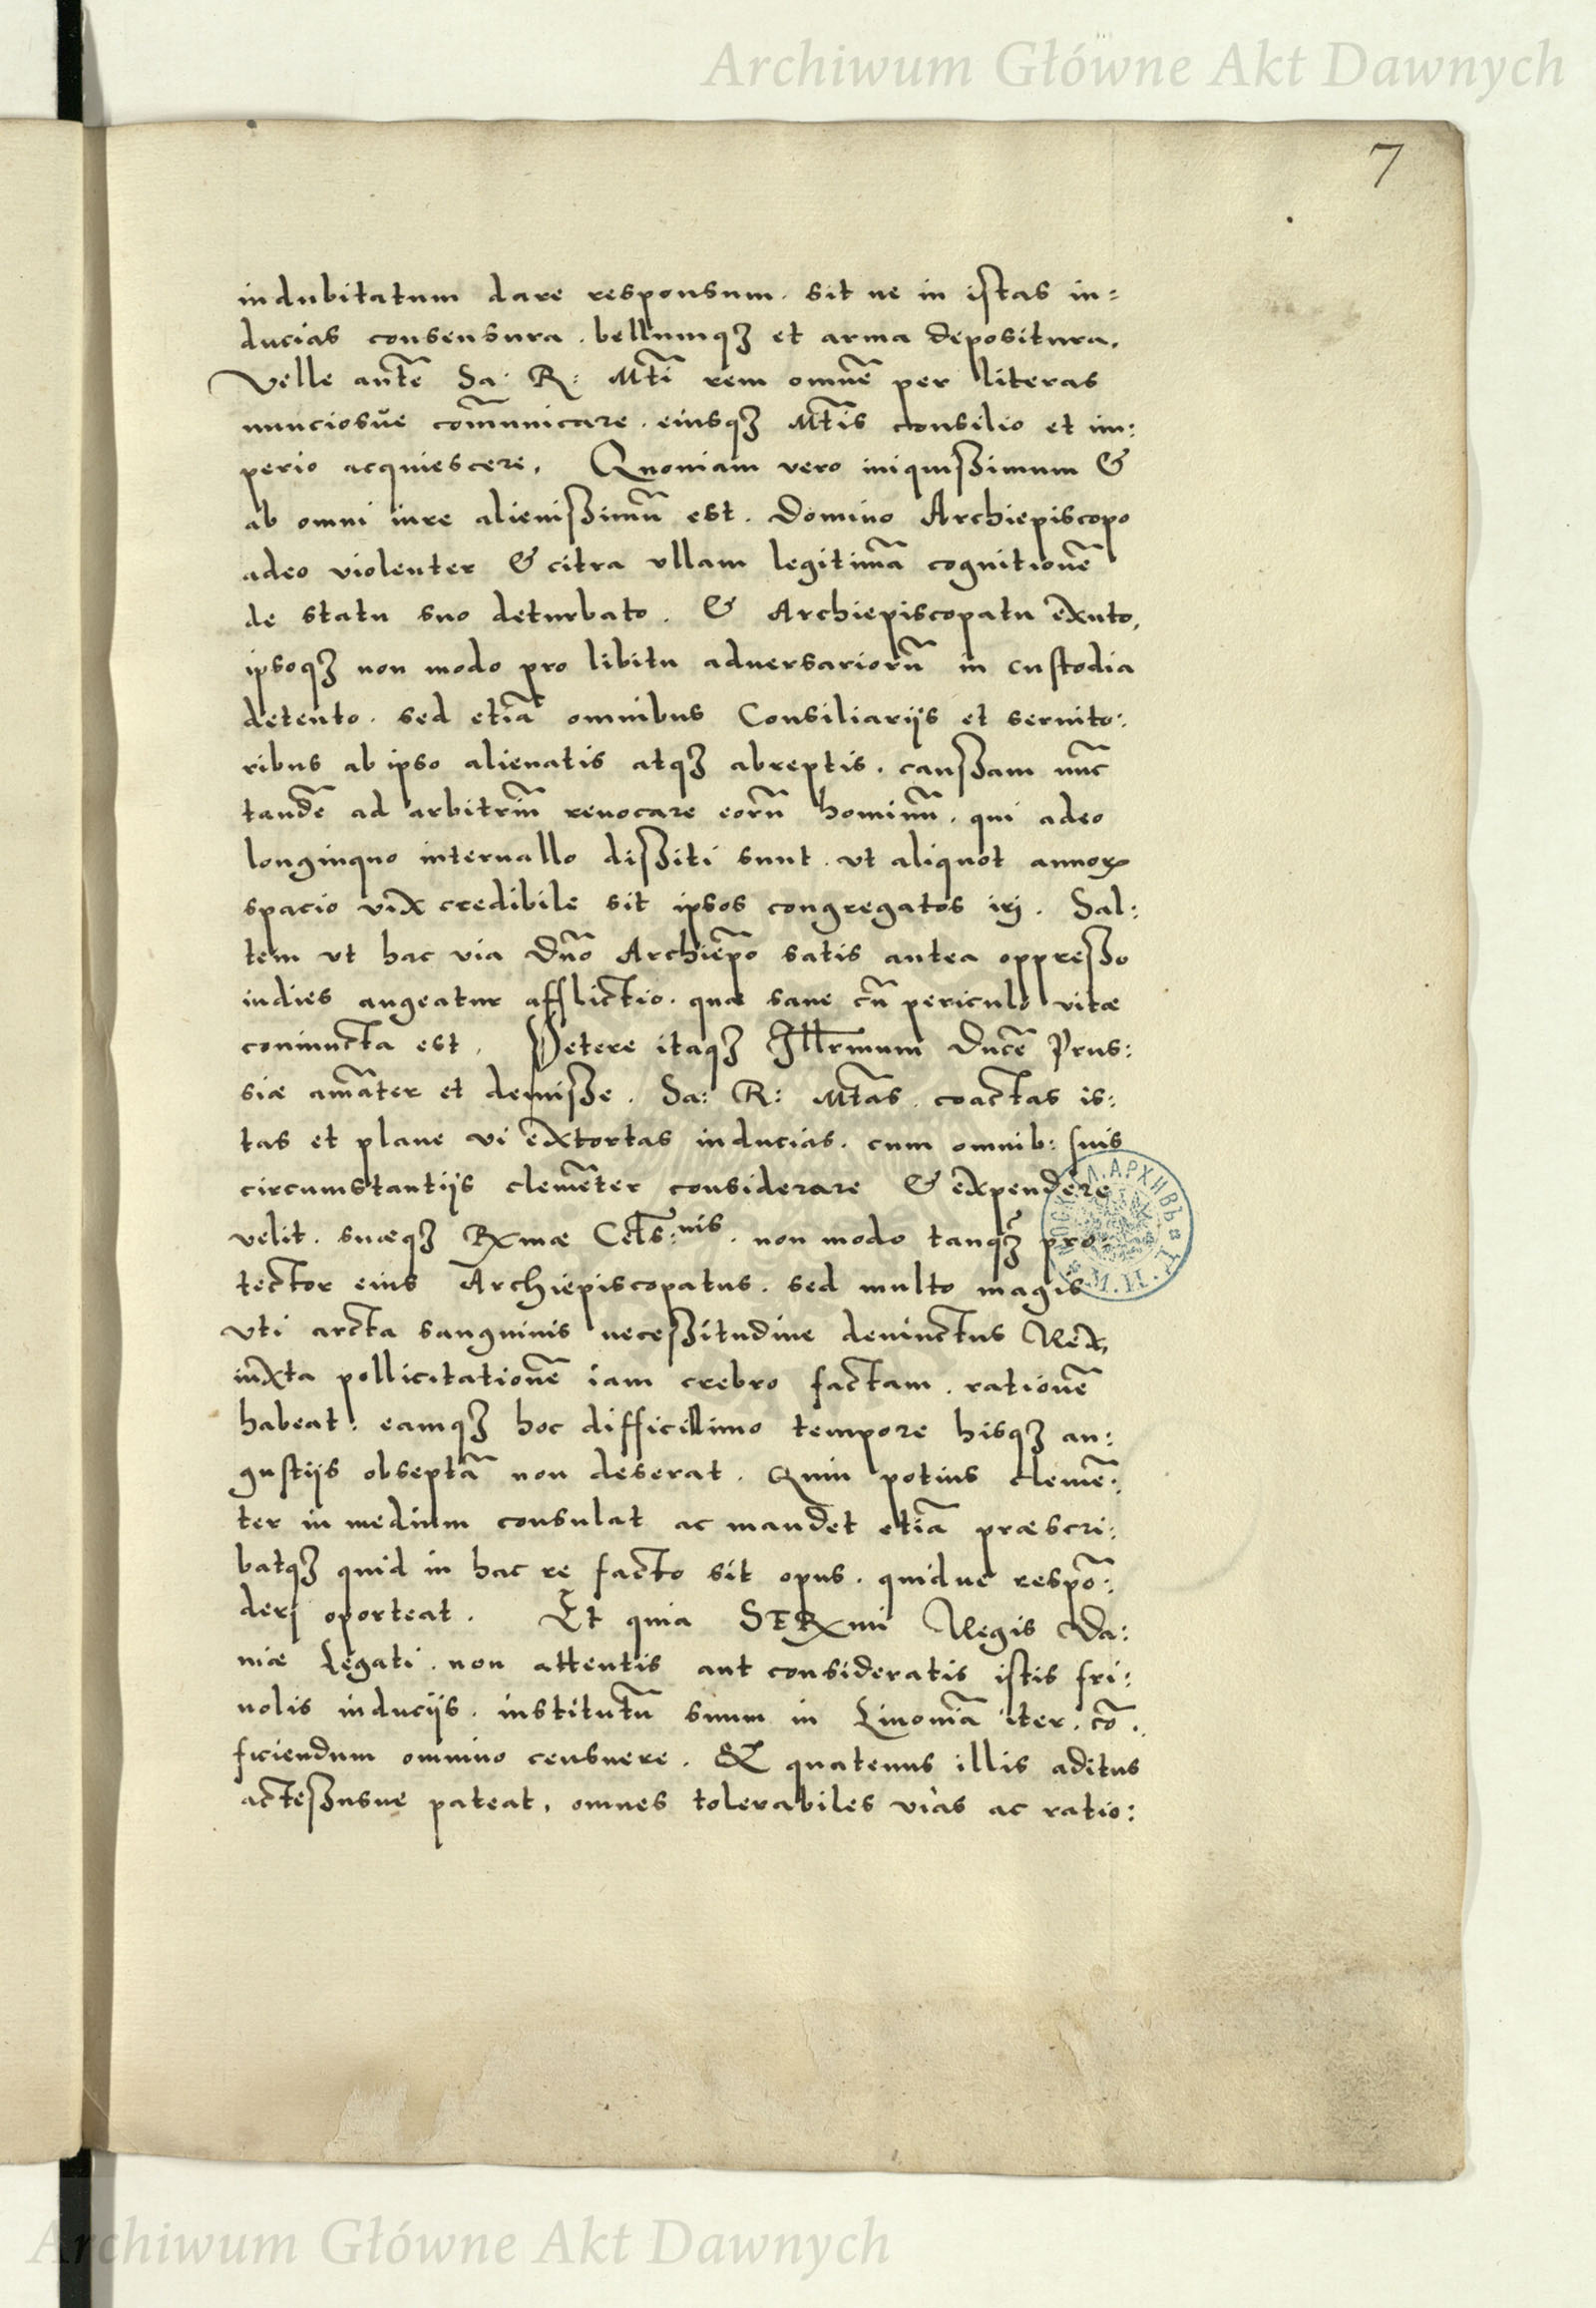 Archiwum Główne Akt Dawnych
7
indubitatum dare responsum. sit ne in istas in=
ducias consensura. bellumqꝫ et arma depositura.
Velle autē Sa: R: Mti rem omnē per literas
nunciosue com̄unicare. eiusqꝫ Mtis consilio et im:
perio acquiescere. Quoniam vero iniquissimum &
ab omni iure alienissimū est. Domino Archiepiscopo
adeo violenter & citra vllam legitimā cognitionē
de statu suo deturbato. & Archiepiscopatu exuto,
ipsoqꝫ non modo pro libitu aduersariorū in custodia
detento. sed etiā omnibus Consiliarijs et seruito:
ribus ab ipso alienatis atqꝫ abreptis. caussam nūc
tandē ad arbitriū reuocare eorū hominū. qui adeo
longinquo interuallo dissiti sunt. vt aliquot annoꝝ
spacio vix credibile sit ipsos congregatos irj. Sal:
tem vt hac via Dn̄o Archiēpo satis antea oppresso
indies augeatur afflictio. quæ sane cū periculo vitæ
coniuncta est. Petere itaqꝫ Illrmum Ducē Prus:
siæ amāter et demisse. Sa: R: Mtas. coactas is:
tas et plane vi extortas inducias. cum omnib: suis
circumstantijs clemēter considerare & expendere
velit. suæqꝫ Rxmæ Cels:nis. non modo tanqꝫ pro:
tector eius Archiepiscopatus. sed multo magis
vti arcta sanguinis necessitudine deuinctus Rex,
iuxta pollicitationē iam crebro factam. rationē
habeat: eamqꝫ hoc difficillimo tempore hisqꝫ an:
gustijs obseptā non deserat. Quin potius clemē:
ter in medium consulat ac mandet etiā præscri:
batqꝫ quid in hac re facto sit opus. quidue respō:
derj oporteat. Et quia SERxmi Regis Da:
niæ Legati. non attentis aut consideratis istis fri:
uolis inducijs. institutū suum in Liuoniā iter. cō:
ficiendum omnino censuere. Et quatenus illis aditus
accessusue pateat, omnes tolerabiles vias ac ratio:
Archiwum Główne Akt Dawnych